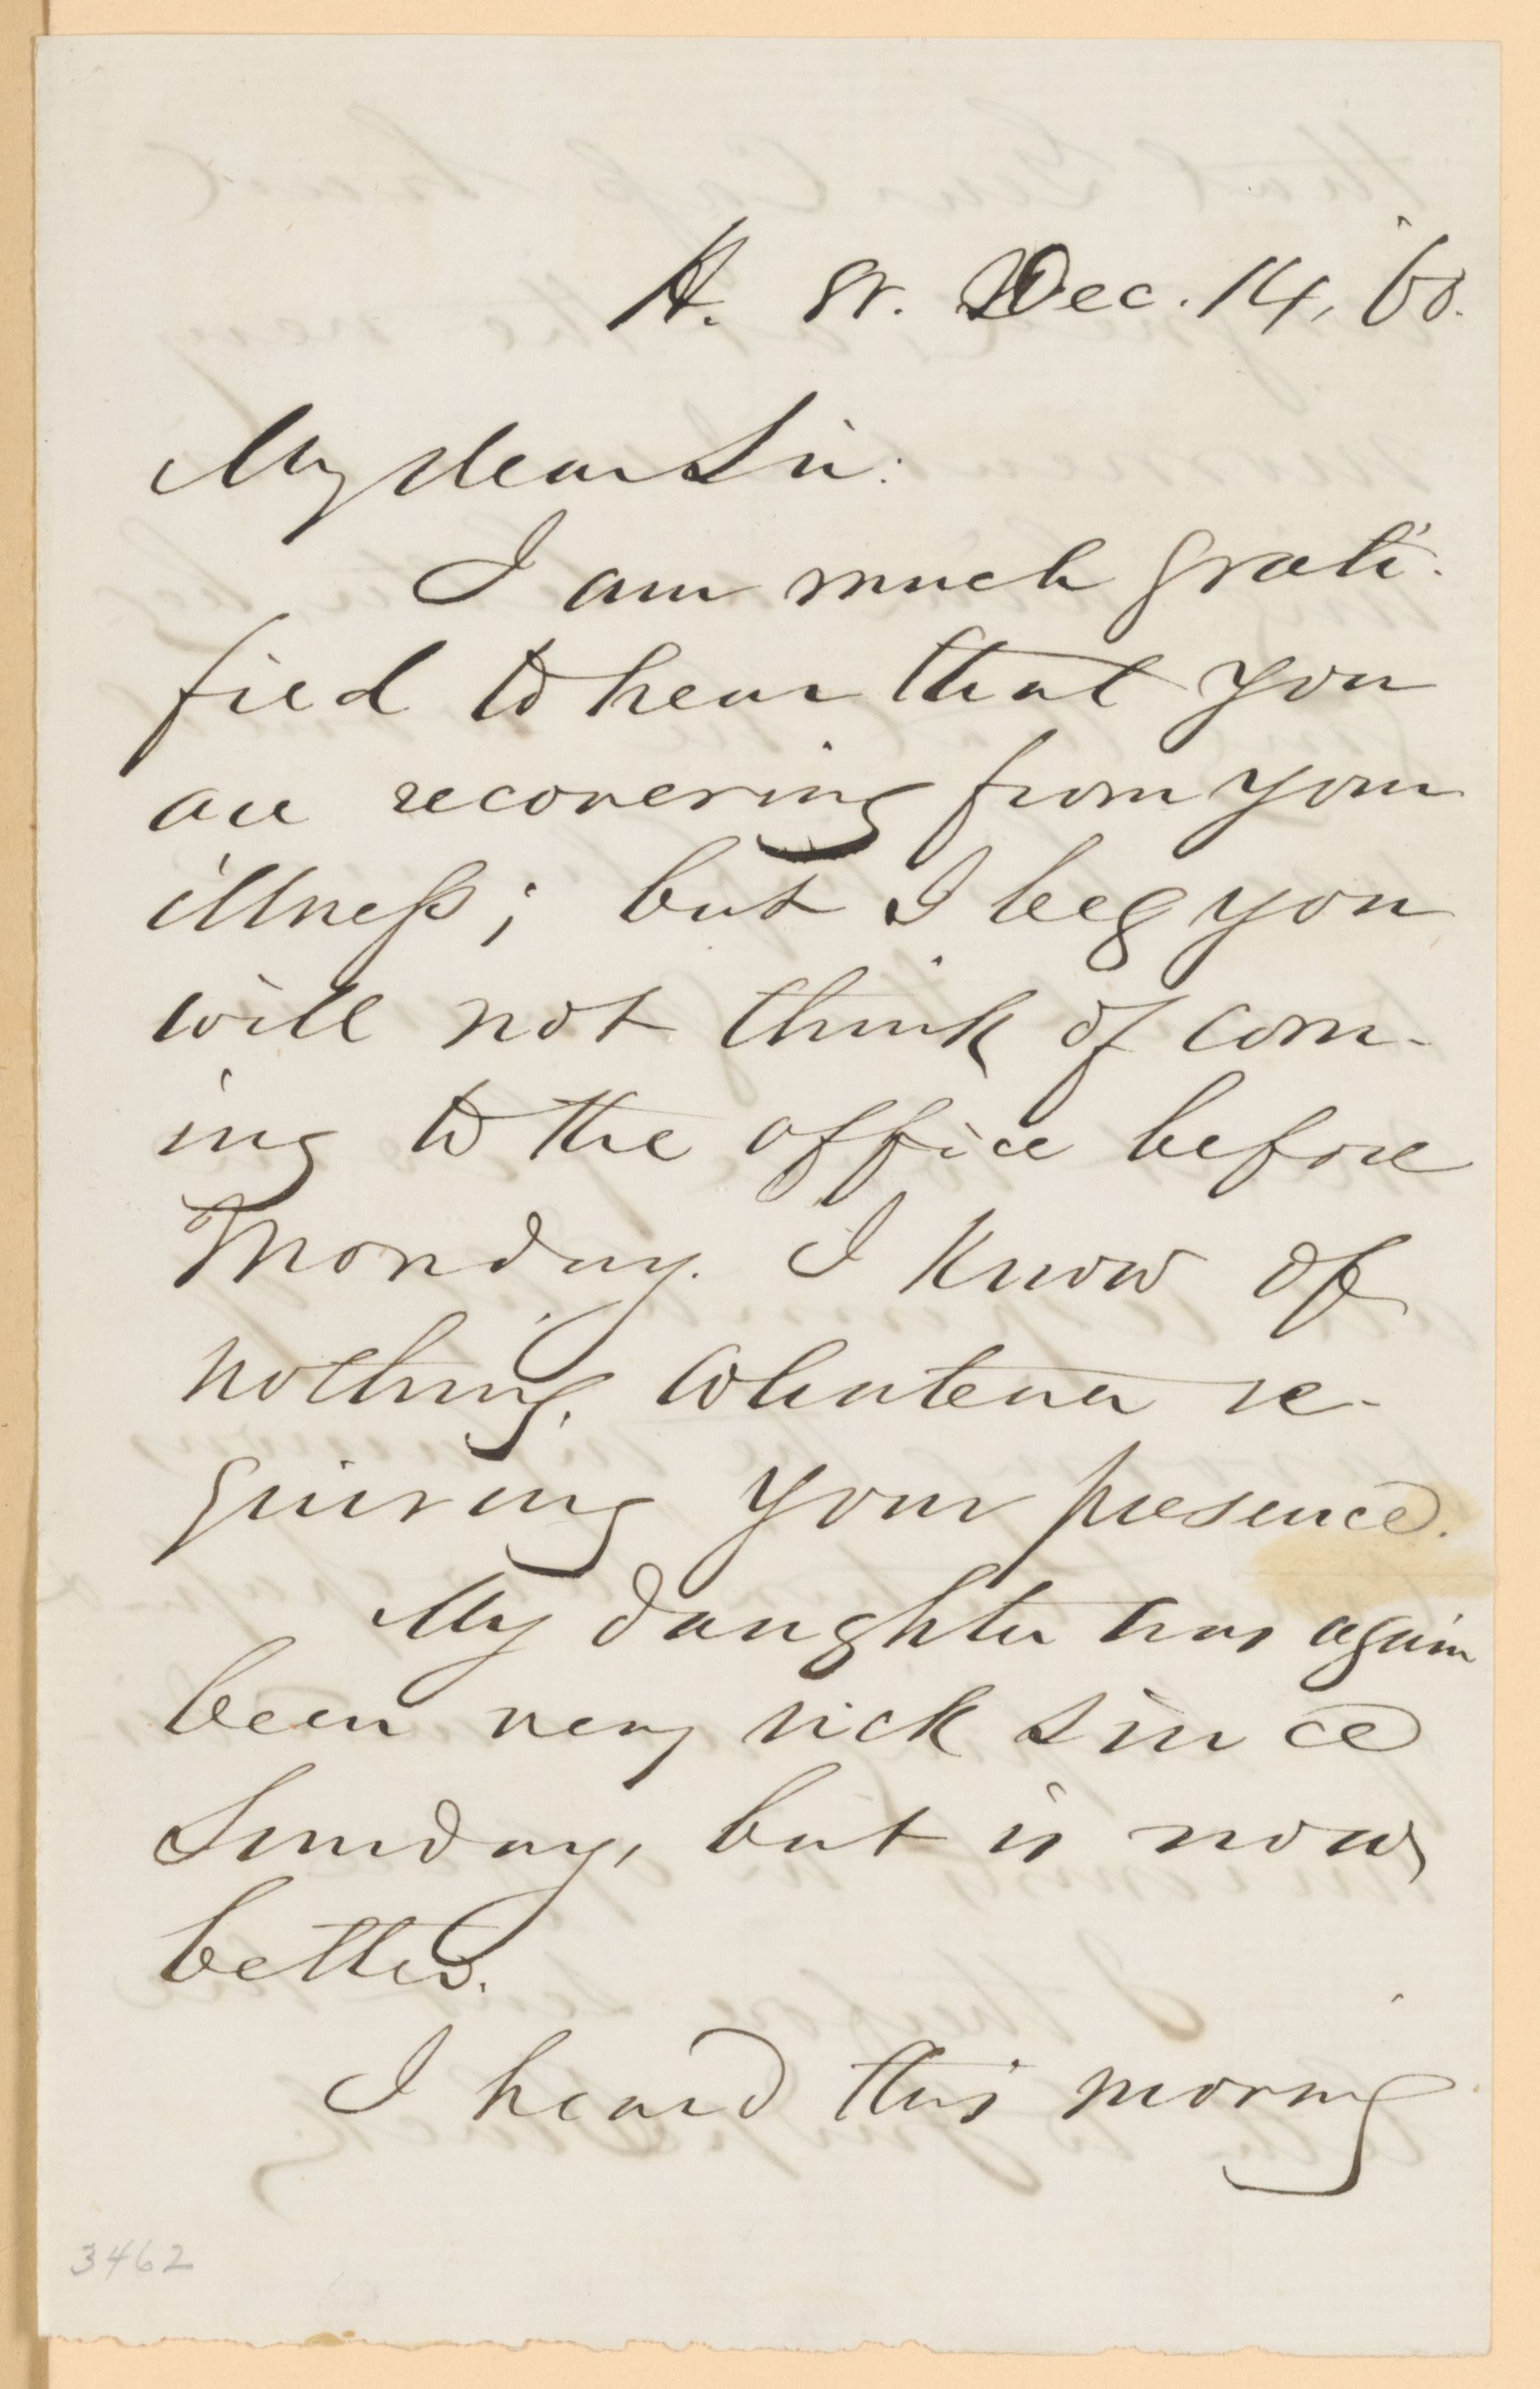 H. St. Dec. 14, '60.
My dear Sir:
I am much grati-
fied to hear that you
are recovering from your
illness; but I beg you
will not think of com-
ing to the office before
Monday. I know of
nothing whatever re-
quiring your presence.
My daughter has again
been very sick since
Sunday, but is now
better.
I heard this morning
3462